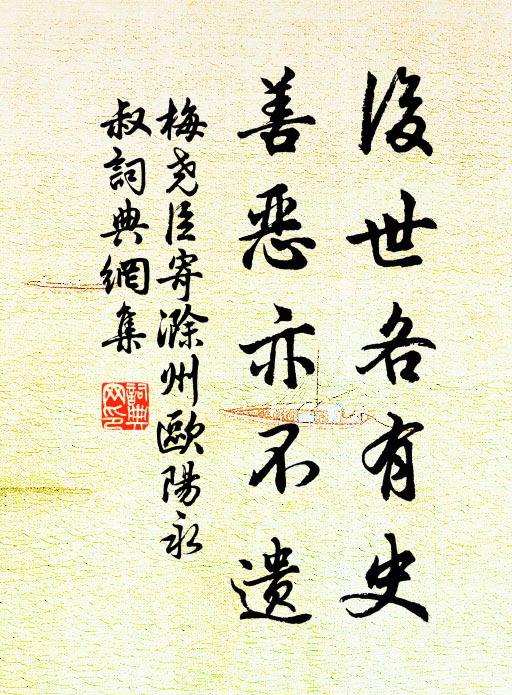 後世各有史
善惡亦不遺
梅堯臣寄滁州歐陽永
叔詞典網集
詞典
网印